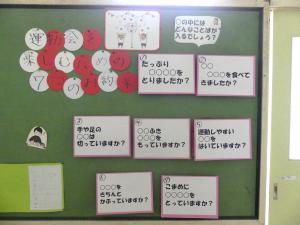 運動会を
楽しむための
7つのお約束
○の中には
どんなことばが
入るでしょう？
たっぷり
○○○○を
とりましたか？
○○
○○○を食べて
きましたか？
手や足の
○○は
切っていますか？
○○ふき
○○○○を
もっていますか？
運動しやすい
○○を
はいていますか？
○○○を
きちんと
かぶっていますか？
こまめに
○○○○を
とっていますか？